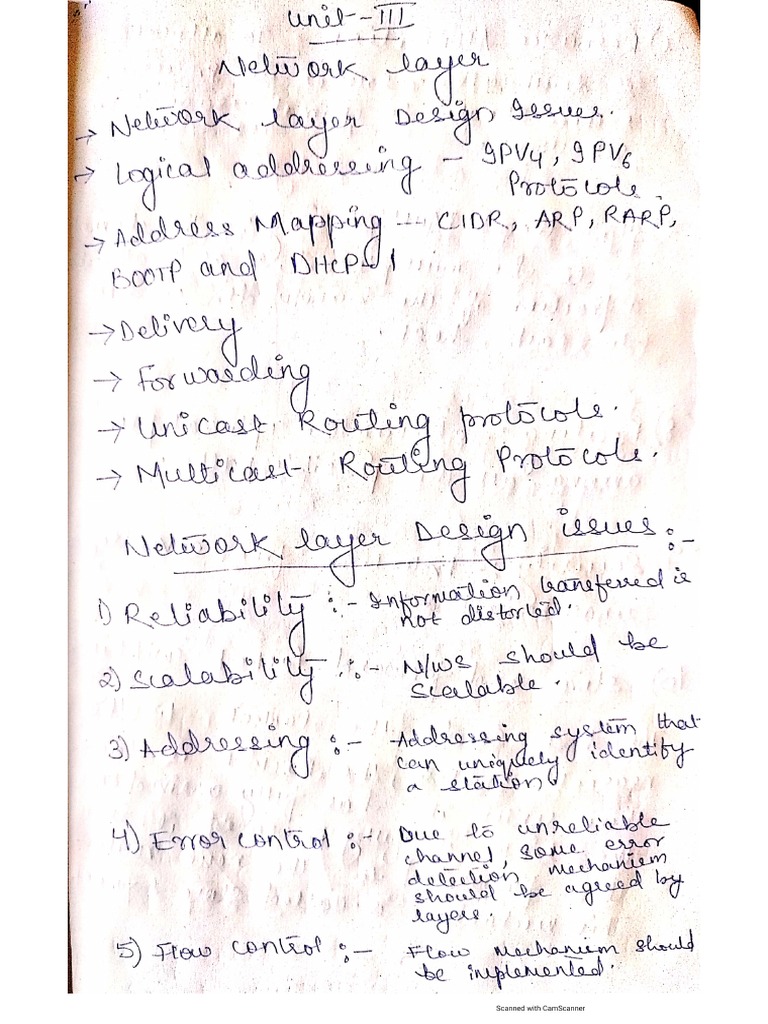 Unit - III
Network layer
→ Network layer Design Issues.
→ Logical addressing - IPV4, IPV6
Protocols.
→ Address Mapping - CIDR, ARP, RARP,
BOOTP and DHCP-1
→ Delivery
→ Forwarding
→ Unicast Routing protocols.
→ Multicast Routing Protocols.
Network layer Design issues :-
1) Reliability :- Information transferred is
not distorted.
2) Scalability :- N/WS should be
scalable.
3) Addressing :- Addressing system that
can uniquely identify
a station.
4) Error control :- Due to unreliable
channel, some error
detection mechanism
should be agreed by
layers.
5) Flow control :- Flow mechanism should
be implemented.
Scanned with CamScanner